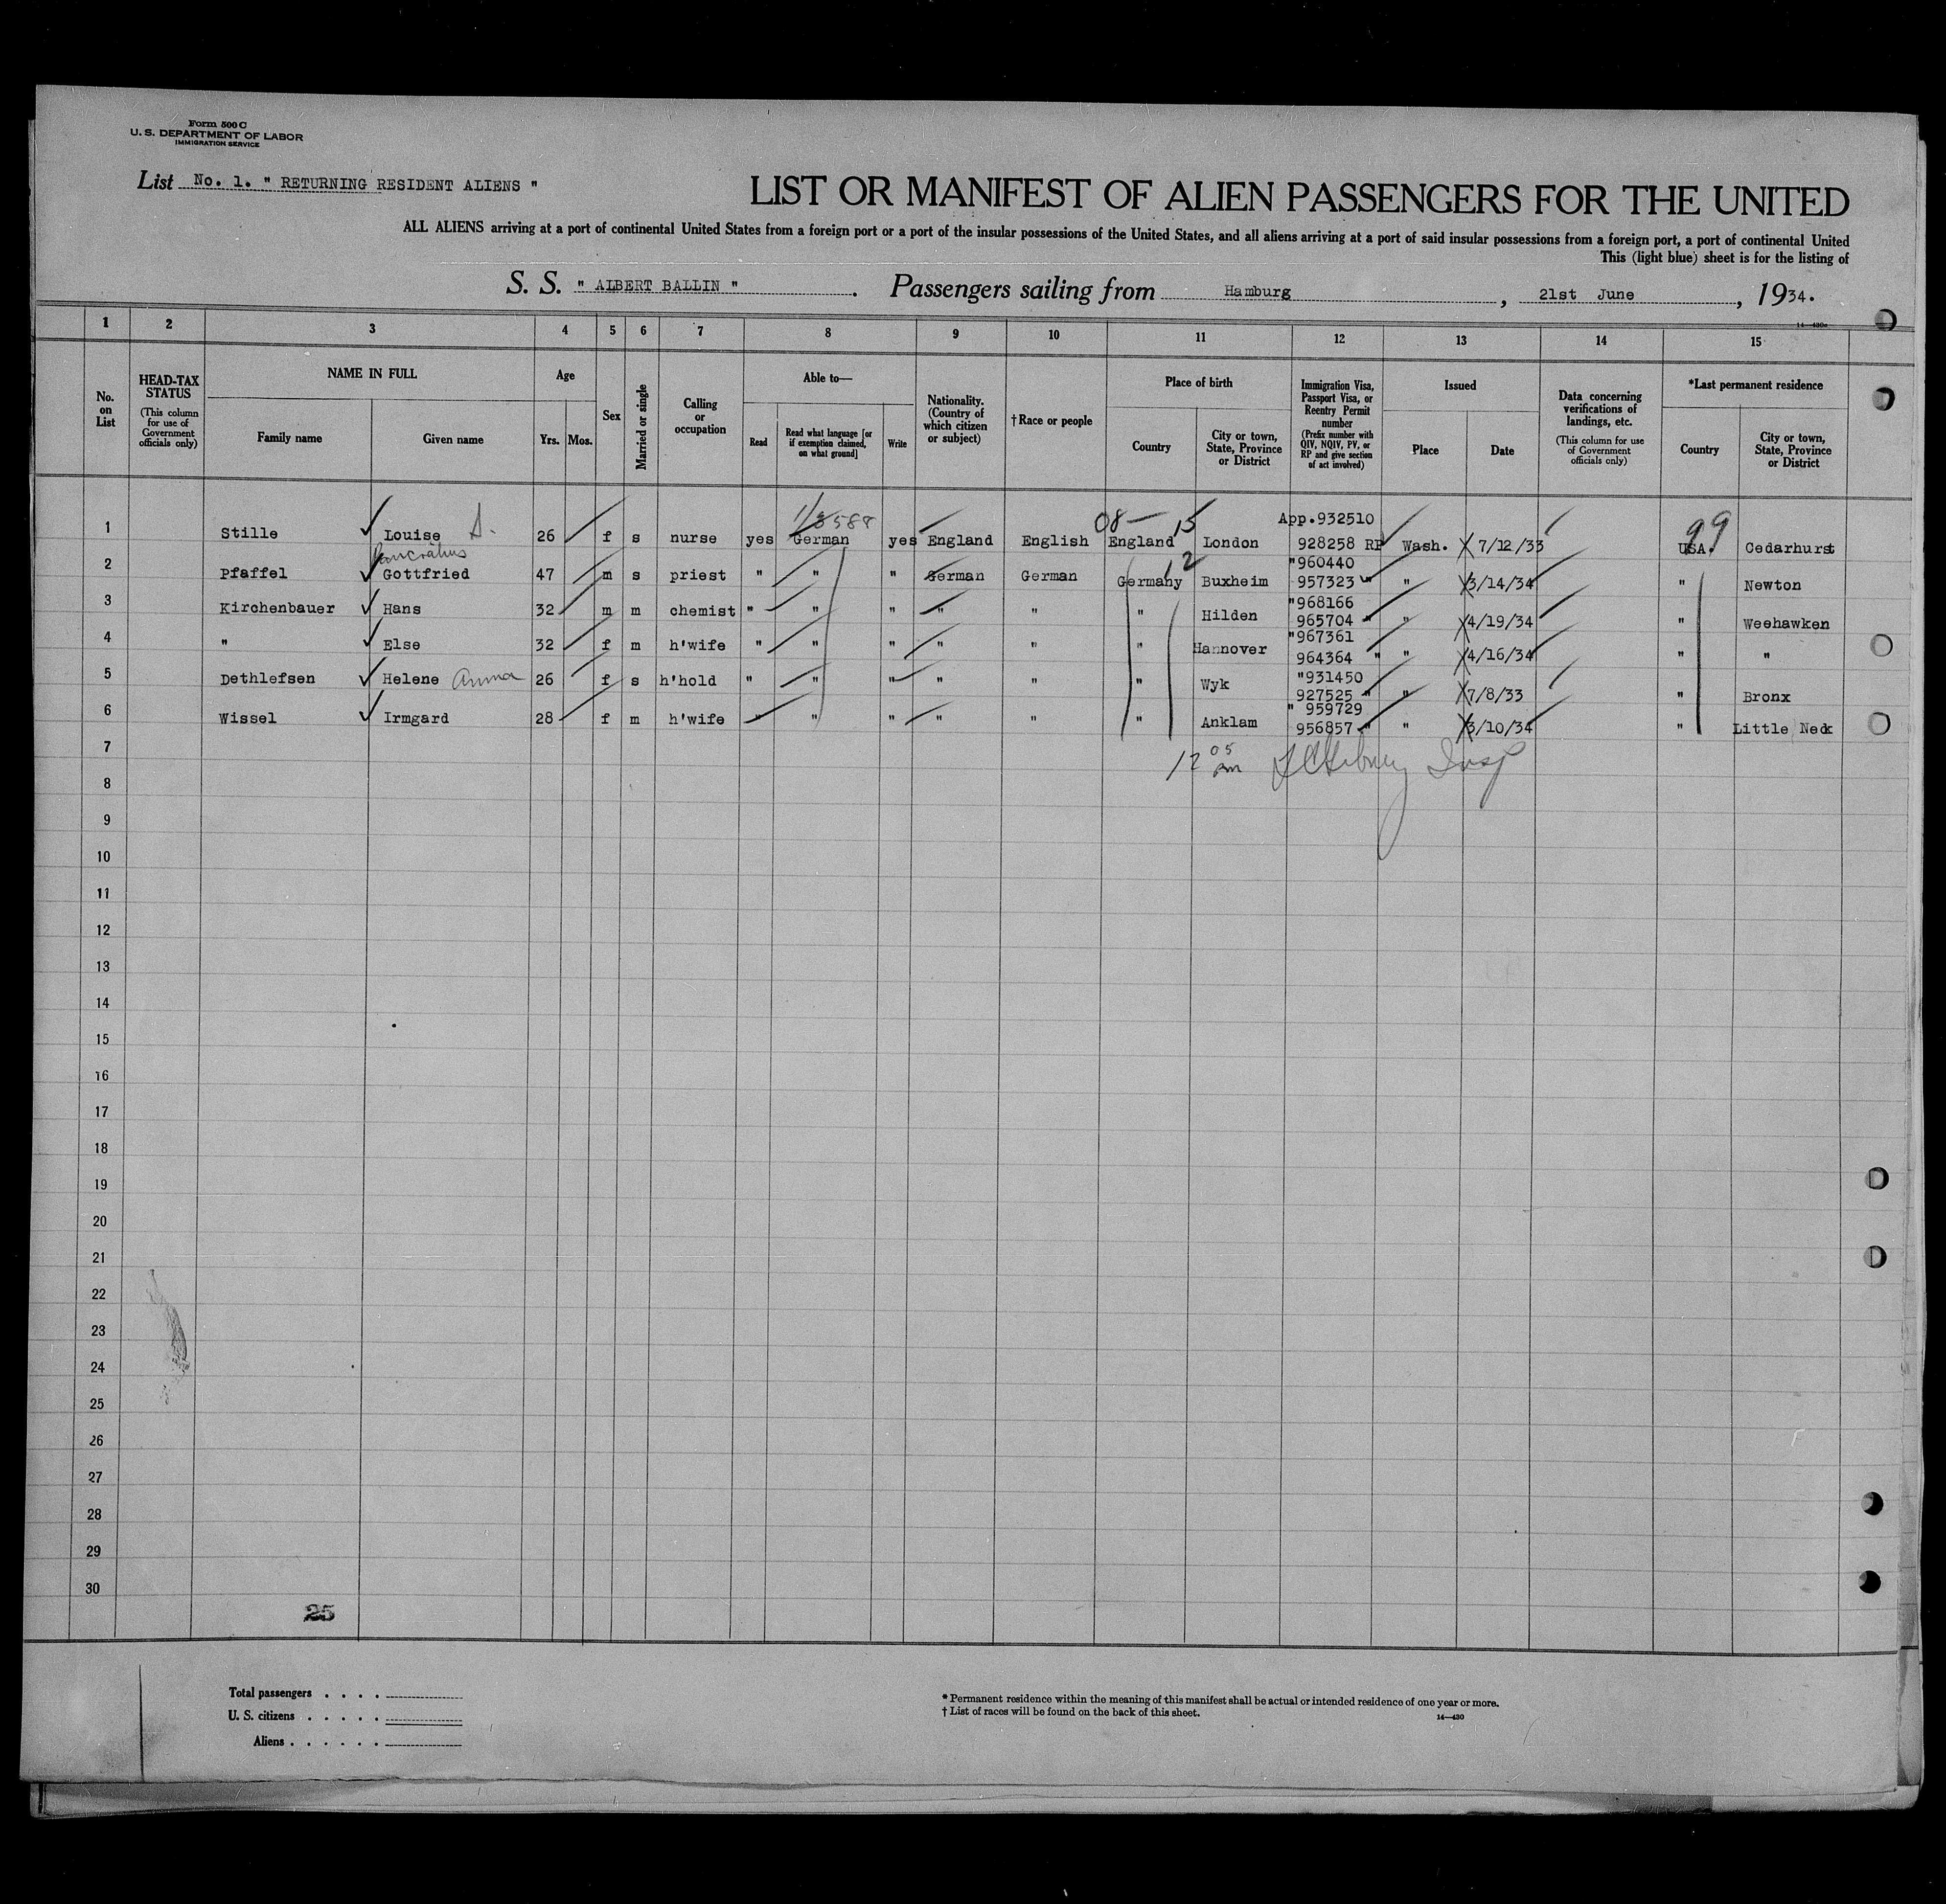 Form 500 C
U. S. DEPARTMENT OF LABOR
IMMIGRATION SERVICE
List No. 1. " RETURNING RESIDENT ALIENS "
LIST OR MANIFEST OF ALIEN PASSENGERS FOR THE UNITED
ALL ALIENS arriving at a port of continental United States from a foreign port or a port of the insular possessions of the United States, and all aliens arriving at a port of said insular possessions from a foreign port, a port of continental United
This (light blue) sheet is for the listing of
S. S. " ALBERT BALLIN " . Passengers sailing from Hamburg , 21st June , 1934.
1 2 3 4 5 6 7 8 9 10 11 12 13 14 15
No. on List
HEAD-TAX STATUS
(This column for use of Government officials only)
NAME IN FULL
Family name
Given name
Age
Yrs. Mos.
Sex
Married or single
Calling or occupation
Able to—
Read
Read what language [or if exemption claimed, on what ground]
Write
Nationality. (Country of which citizen or subject)
† Race or people
Place of birth
Country
City or town, State, Province or District
Immigration Visa, Passport Visa, or Reentry Permit number
(Prefix number with QIV, NQIV, PV, or RP and give section of act involved)
Issued
Place
Date
Data concerning verifications of landings, etc.
(This column for use of Government officials only)
*Last permanent residence
Country
City or town, State, Province or District
08— 15 App.932510
1 Stille Louise S. 26 f s nurse yes German yes England English England London 928258 RP Wash. 7/12/33 USA. 99 Cedarhurst
Pancratius 12 "960440
2 Pfaffel Gottfried 47 m s priest " " " German German Germany Buxheim 957323 " " 3/14/34 " Newton
"968166
3 Kirchenbauer Hans 32 m m chemist " " " " " " Hilden 965704 " " 4/19/34 " Weehawken
"967361
4 " Else 32 f m h'wife " " " " " " Hannover 964364 " " 4/16/34 " "
"931450
5 Dethlefsen Helene Anna 26 f s h'hold " " " " " " Wyk 927525 " " 7/8/33 " Bronx
" 959729
6 Wissel Irmgard 28 f m h'wife " " " " " " Anklam 956857 " " 3/10/34 " Little Neck
7
12 05 Insp
8
9
10
11
12
13
14
15
16
17
18
19
20
21
22
23
24
25
26
27
28
29
30
25
Total passengers . . . .
U. S. citizens . . . . .
Aliens . . . . . .
* Permanent residence within the meaning of this manifest shall be actual or intended residence of one year or more.
† List of races will be found on the back of this sheet.
14—430